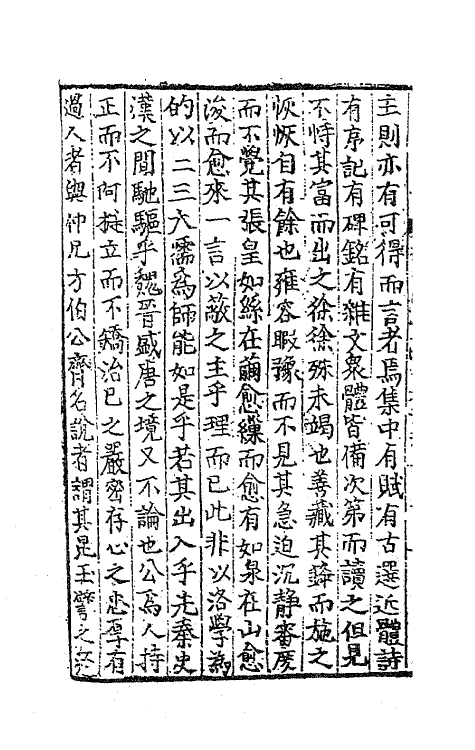 主則亦有可得而言者焉集中有賦有古選近體詩
有序記有碑銘有雜文衆體皆備次第而讀之但見
不恃其富而出之徐徐殊未竭也善藏其鋒而施之
恢恢自有餘也雍容暇豫而不見其急迫沉静審度
而不覺其張皇如絲在繭愈繅而愈有如泉在山愈
浚而愈來一言以蔽之主乎理而已此非以洛學為
的以二三大儒為師能如是乎若其出入乎先秦史
漢之間馳驅乎魏晉盛唐之境又不論也公為人持
正而不阿挺立而不矯治已之嚴密存心之忠厚有
過人者與仲兄方伯公齊名說者謂其昆玉譬之